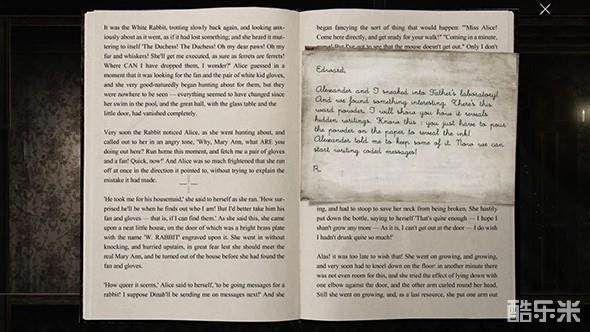 It was the White Rabbit, trotting slowly back again, and looking anx-
iously about as it went, as if it had lost something; and she heard it mut-
tering to itself 'The Duchess! The Duchess! Oh my dear paws! Oh my
fur and whiskers! She'll get me executed, as sure as ferrets are ferrets!
Where CAN I have dropped them, I wonder?' Alice guessed in a
moment that it was looking for the fan and the pair of white kid gloves,
and she very good-naturedly began hunting about for them, but they
were nowhere to be seen — everything seemed to have changed since
her swim in the pool, and the great hall, with the glass table and the
little door, had vanished completely.
Very soon the Rabbit noticed Alice, as she went hunting about, and
called out to her in an angry tone, 'Why, Mary Ann, what ARE you
doing out here? Run home this moment, and fetch me a pair of gloves
and a fan! Quick, now!' And Alice was so much frightened that she ran
off at once in the direction it pointed to, without trying to explain the
mistake it had made.
'He took me for his housemaid,' she said to herself as she ran. 'How sur-
prised he'll be when he finds out who I am! But I'd better take him his
fan and gloves — that is, if I can find them.' As she said this, she came
upon a neat little house, on the door of which was a bright brass plate
with the name 'W. RABBIT' engraved upon it. She went in without
knocking, and hurried upstairs, in great fear lest she should meet the
real Mary Ann, and be turned out of the house before she had found the
fan and gloves.
'How queer it seems,' Alice said to herself, 'to be going messages for a
rabbit! I suppose Dinah'll be sending me on messages next!' And she
began fancying the sort of thing that would happen: '"Miss Alice!
Come here directly, and get ready for your walk!" "Coming in a minute,
nurse! But I've got to see that the mouse doesn't get out." Only I don't
Edward,
Alexander and I sneaked into Father's laboratory!
And we found something interesting. There's this
weird powder, I will show you how it reveals
hidden writings. Know this : you just have to pour
the powder on the paper to reveal the ink!
Alexander told me to keep some of it. Now we can
start writing coded messages!
R.
ing, and had to stoop to save her neck from being broken. She hastily
put down the bottle, saying to herself 'That's quite enough — I hope I
shan't grow any more — As it is, I can't get out at the door — I do wish
I hadn't drunk quite so much!'
Alas! it was too late to wish that! She went on growing, and growing,
and very soon had to kneel down on the floor: in another minute there
was not even room for this, and she tried the effect of lying down with
one elbow against the door, and the other arm curled round her head.
Still she went on growing, and, as a last resource, she put one arm out
酷乐米